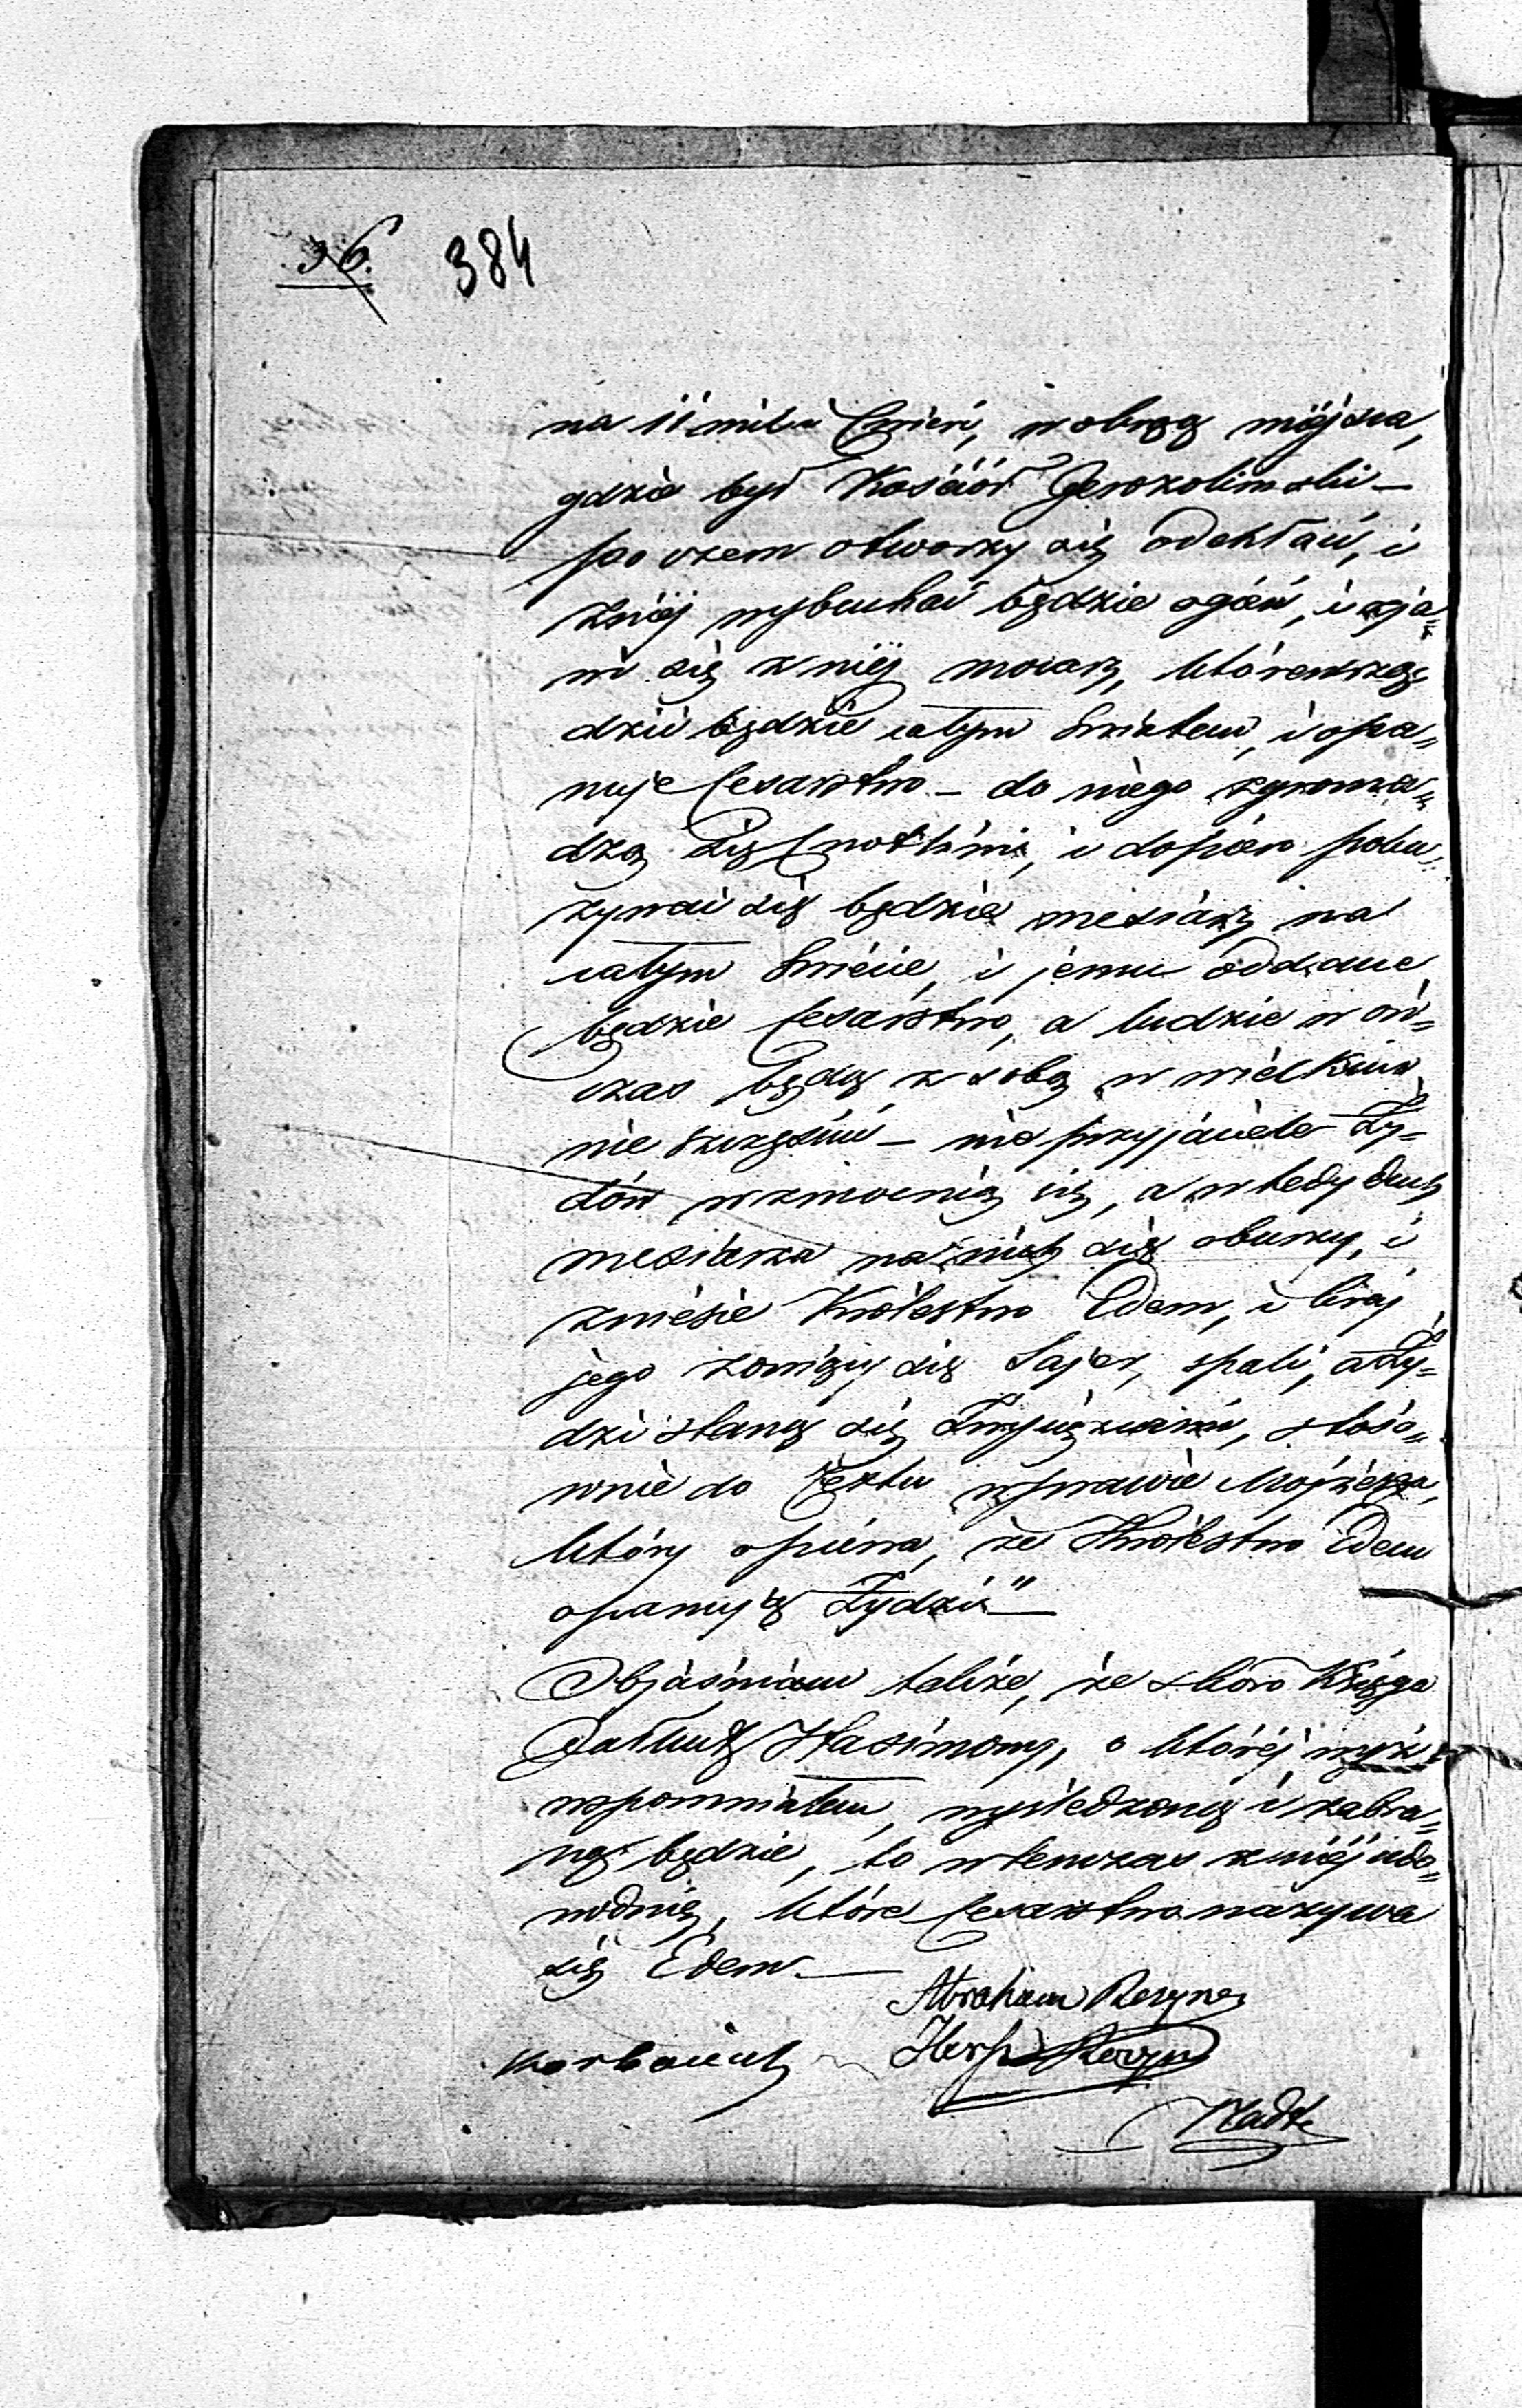 36. 384
na 11 mil i ćwierć, w obrąg miejsca,
gdzie był Kościół Jerozolimski —
po czem otworzy się odchłań, i
z niéj wybuchać będzie ogień, i zja=
wi się z niéj mocarz, któren rzą=
dzić będzie całym Światem, i opa=
nuje Cesarstwo — do niego zgroma=
dzą się i dopiero poka=
zywać się będzie mesiarz na
całym Świecie, i jemu oddane
będzie Cesarstwo, a ludzie w ów=
czas będą z sobą w wielkim
nieszczęściu — nieprzyjaciele Ży=
dów wzmocnią się, a wtedy duch
mesiarza na nich się oburzy, i
zniesie Królestwo Edem, i kraj
jego zowiący się Sajer, spali, a Ży=
dzi staną się Zwycięzcami, stoso=
wnie do Textu w prawie Mojżesza,
który opiewa, że Królestwo Edem
opanują Żydzi" —
Objaśniam także, że skoro Księga
Jałkut Haszimony, o któréj wyżéj
wspomniałem, wyśledzoną i zabra=
ną będzie, to wtenczas z niéj udo=
wodnię, które Cesarstwo nazywa
się Edem —
Abraham
Hersz